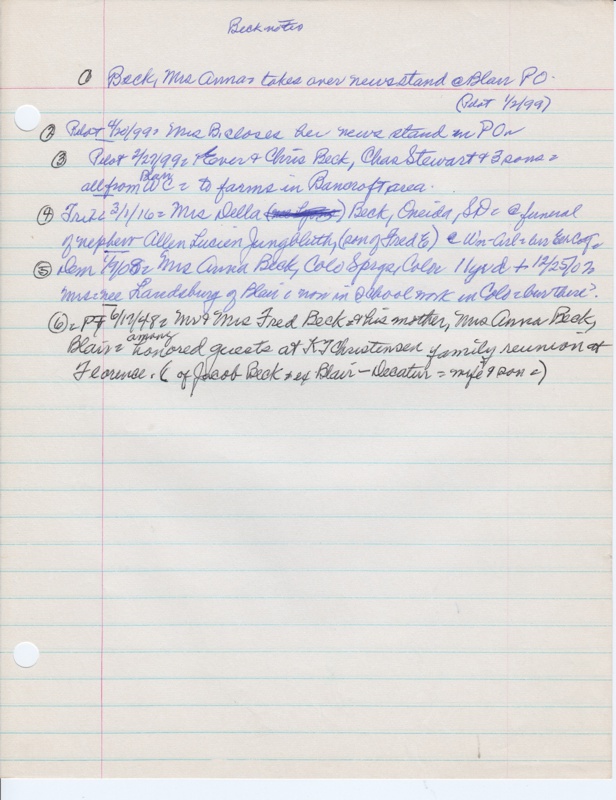 Beck notes
① Beck, Mrs Anna = takes over newsstand @ Blair PO.
(Pilot 1/2/99)
② Pilot 4/20/99 = Mrs B. closes her news stand in PO
③ Pilot 2/27/99 = & Chris Beck, Chas Stewart & 3 sons =
Blair
all from WC = to farms in Bancroft area.
④ Trib 3/1/16 = Mrs Della Beck, Oneida, SD = @ funeral
of nephew Allen Lucien Jungbluth, (son of Fred E) @ Wn-Arl =
⑤ Dem 1/9/08 = Mrs Anna Beck, Colo Sprgs, Color 11 yr d + 12/25/07
Mrs = nee Landsburg of Blair & now in school work in Colo =
⑥ = PT 6/17/48 = Mr & Mrs Fred Beck & his mother, Mrs Anna Beck,
among
Blair = honored guests at K J Christensen family reunion at
Florence. (of Jacob Beck = ex Blair - Decatur = wife & son =)